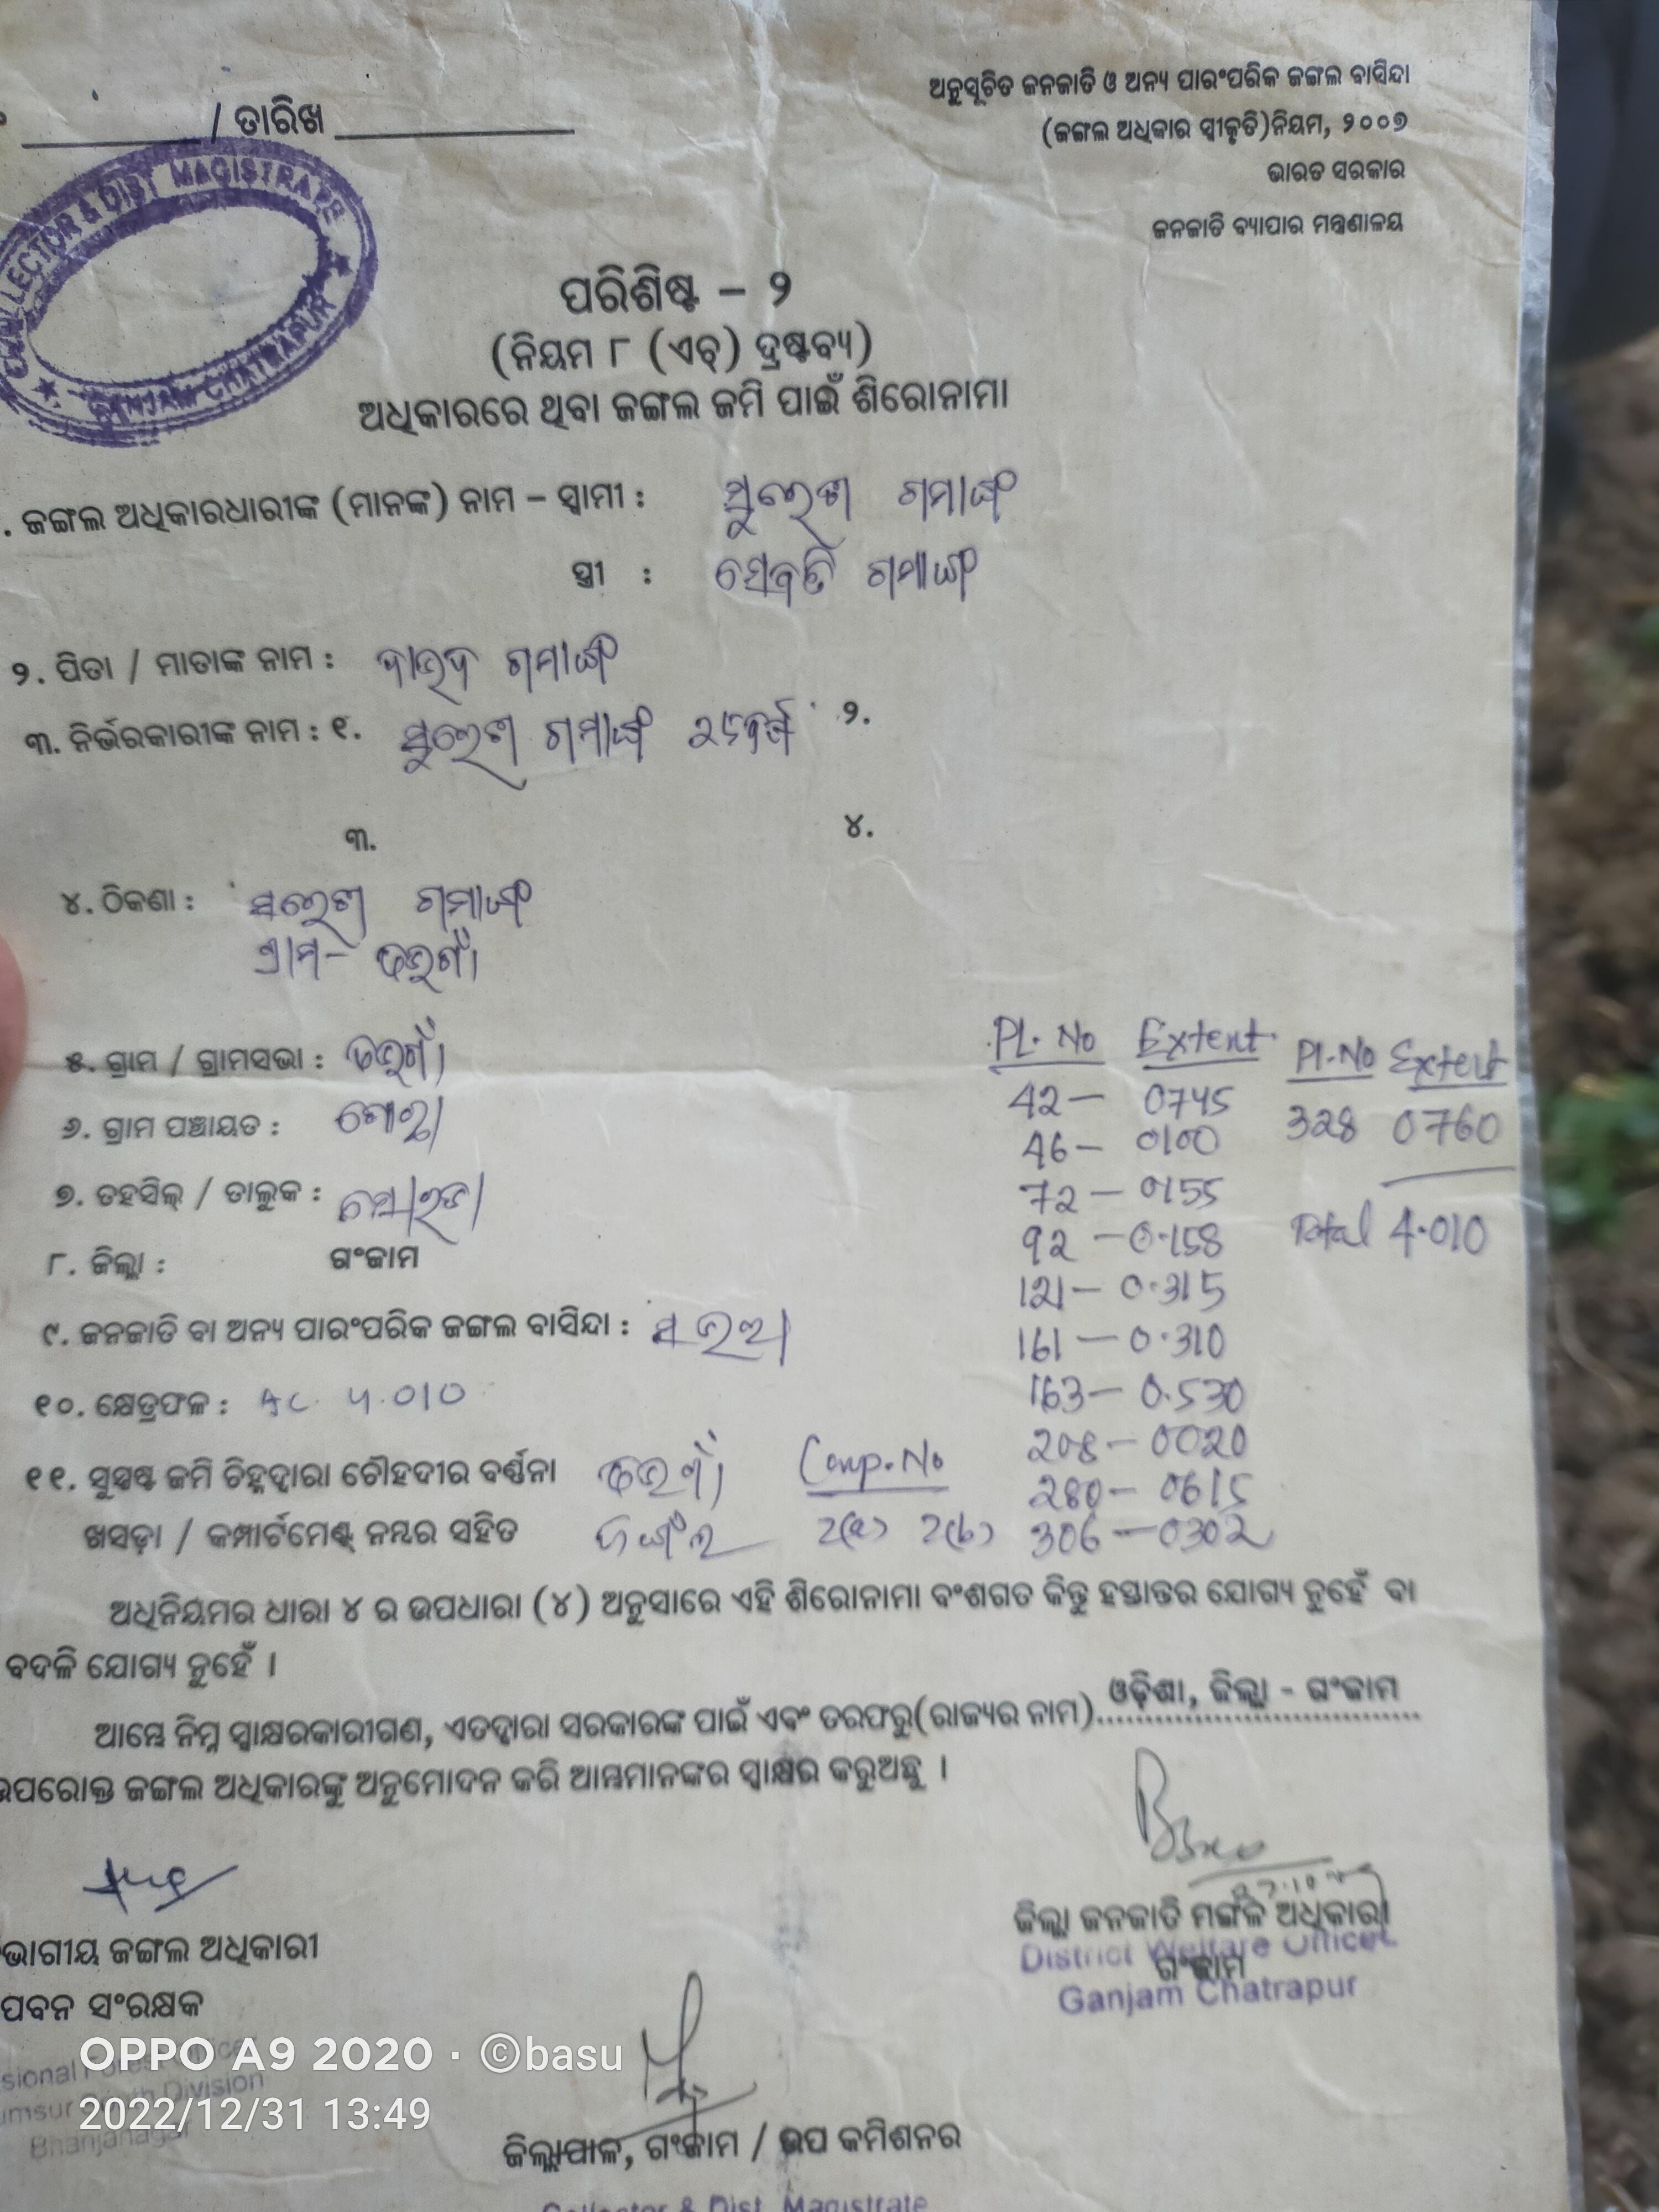 / ତାରିଖ
ଅନୁସୂଚିତ ଜନଜାତି ଓ ଅନ୍ୟ ପାରଂପରିକ ଜଙ୍ଗଲ ବାସିନ୍ଦା
(ଜଙ୍ଗଲ ଅଧିକାର ସ୍ୱୀକୃତି)ନିୟମ, ୨୦୦୭
ଭାରତ ସରକାର
ଜନଜାତି ବ୍ୟାପାର ମନ୍ତ୍ରଣାଳୟ
COLLECTOR & DIST MAGISTRATE
GANJAM CHATRAPUR
ପରିଶିଷ୍ଟ – ୨
(ନିୟମ ୮ (ଏଚ୍) ଦ୍ରଷ୍ଟବ୍ୟ)
ଅଧିକାରରେ ଥିବା ଜଙ୍ଗଲ ଜମି ପାଇଁ ଶିରୋନାମା
. ଜଙ୍ଗଲ ଅଧିକାରଧାରୀଙ୍କ (ମାନଙ୍କ) ନାମ – ସ୍ୱାମୀ : ସୁରେଶ ଗମାଙ୍ଗ
ସ୍ତ୍ରୀ : ସେବତି ଗମାଙ୍ଗ
୨. ପିତା / ମାତାଙ୍କ ନାମ : ଦାଉଦ ଗମାଙ୍ଗ
୩. ନିର୍ଭରକାରୀଙ୍କ ନାମ : ୧. ସୁରେଶ ଗମାଙ୍ଗ ୨.
୩. ୪.
୪. ଠିକଣା : ସୁରେଶ ଗମାଙ୍ଗ
ଗ୍ରାମ–
୫. ଗ୍ରାମ / ଗ୍ରାମସଭା :
୬. ଗ୍ରାମ ପଞ୍ଚାୟତ :
୭. ତହସିଲ୍ / ତାଲୁକ :
୮. ଜିଲ୍ଲା : ଗଂଜାମ
୯. ଜନଜାତି ବା ଅନ୍ୟ ପାରଂପରିକ ଜଙ୍ଗଲ ବାସିନ୍ଦା : ସଉରା
୧୦. କ୍ଷେତ୍ରଫଳ : Ac. 4.010
Pl. No Extent
42 – 0745
46 – 0100
72 – 0155
92 – 0.158
121 – 0.315
161 – 0.310
163 – 0.530
208 – 0020
280 – 0615
306 – 0302
Pl. No Extent
328 0760
Total 4.010
୧୧. ସୁସ୍ପଷ୍ଟ ଜମି ଚିହ୍ନଦ୍ୱାରା ଚୌହଦୀର ବର୍ଣ୍ଣନା Comp. No
ଖସଡ଼ା / କମ୍ପାର୍ଟମେଣ୍ଟ ନମ୍ବର ସହିତ ଜଙ୍ଗଲ 2(a) 2(b)
ଅଧିନିୟମର ଧାରା ୪ ର ଉପଧାରା (୪) ଅନୁସାରେ ଏହି ଶିରୋନାମା ବଂଶଗତ କିନ୍ତୁ ହସ୍ତାନ୍ତର ଯୋଗ୍ୟ ନୁହେଁ ବା
ବଦଳି ଯୋଗ୍ୟ ନୁହେଁ ।
ଆମ୍ଭେ ନିମ୍ନ ସ୍ୱାକ୍ଷରକାରୀଗଣ, ଏତଦ୍ୱାରା ସରକାରଙ୍କ ପାଇଁ ଏବଂ ତରଫରୁ(ରାଜ୍ୟର ନାମ) ଓଡ଼ିଶା, ଜିଲ୍ଲା - ଗଂଜାମ
ଉପରୋକ୍ତ ଜଙ୍ଗଲ ଅଧିକାରଙ୍କୁ ଅନୁମୋଦନ କରି ଆମ୍ଭମାନଙ୍କର ସ୍ୱାକ୍ଷର କରୁଅଛୁ ।
ଜିଲ୍ଲା ଜନଜାତି ମଙ୍ଗଳ ଅଧିକାରୀ
ଗଂଜାମ
District Welfare Officer
Ganjam Chatrapur
ଭାଗୀୟ ଜଙ୍ଗଲ ଅଧିକାରୀ
ପବନ ସଂରକ୍ଷକ
Division
Bhanjanagar
ଜିଲ୍ଲାପାଳ, ଗଂଜାମ / ଉପ କମିଶନର
Collector & Dist. Magistrate
OPPO A9 2020 · ©basu
2022/12/31 13:49